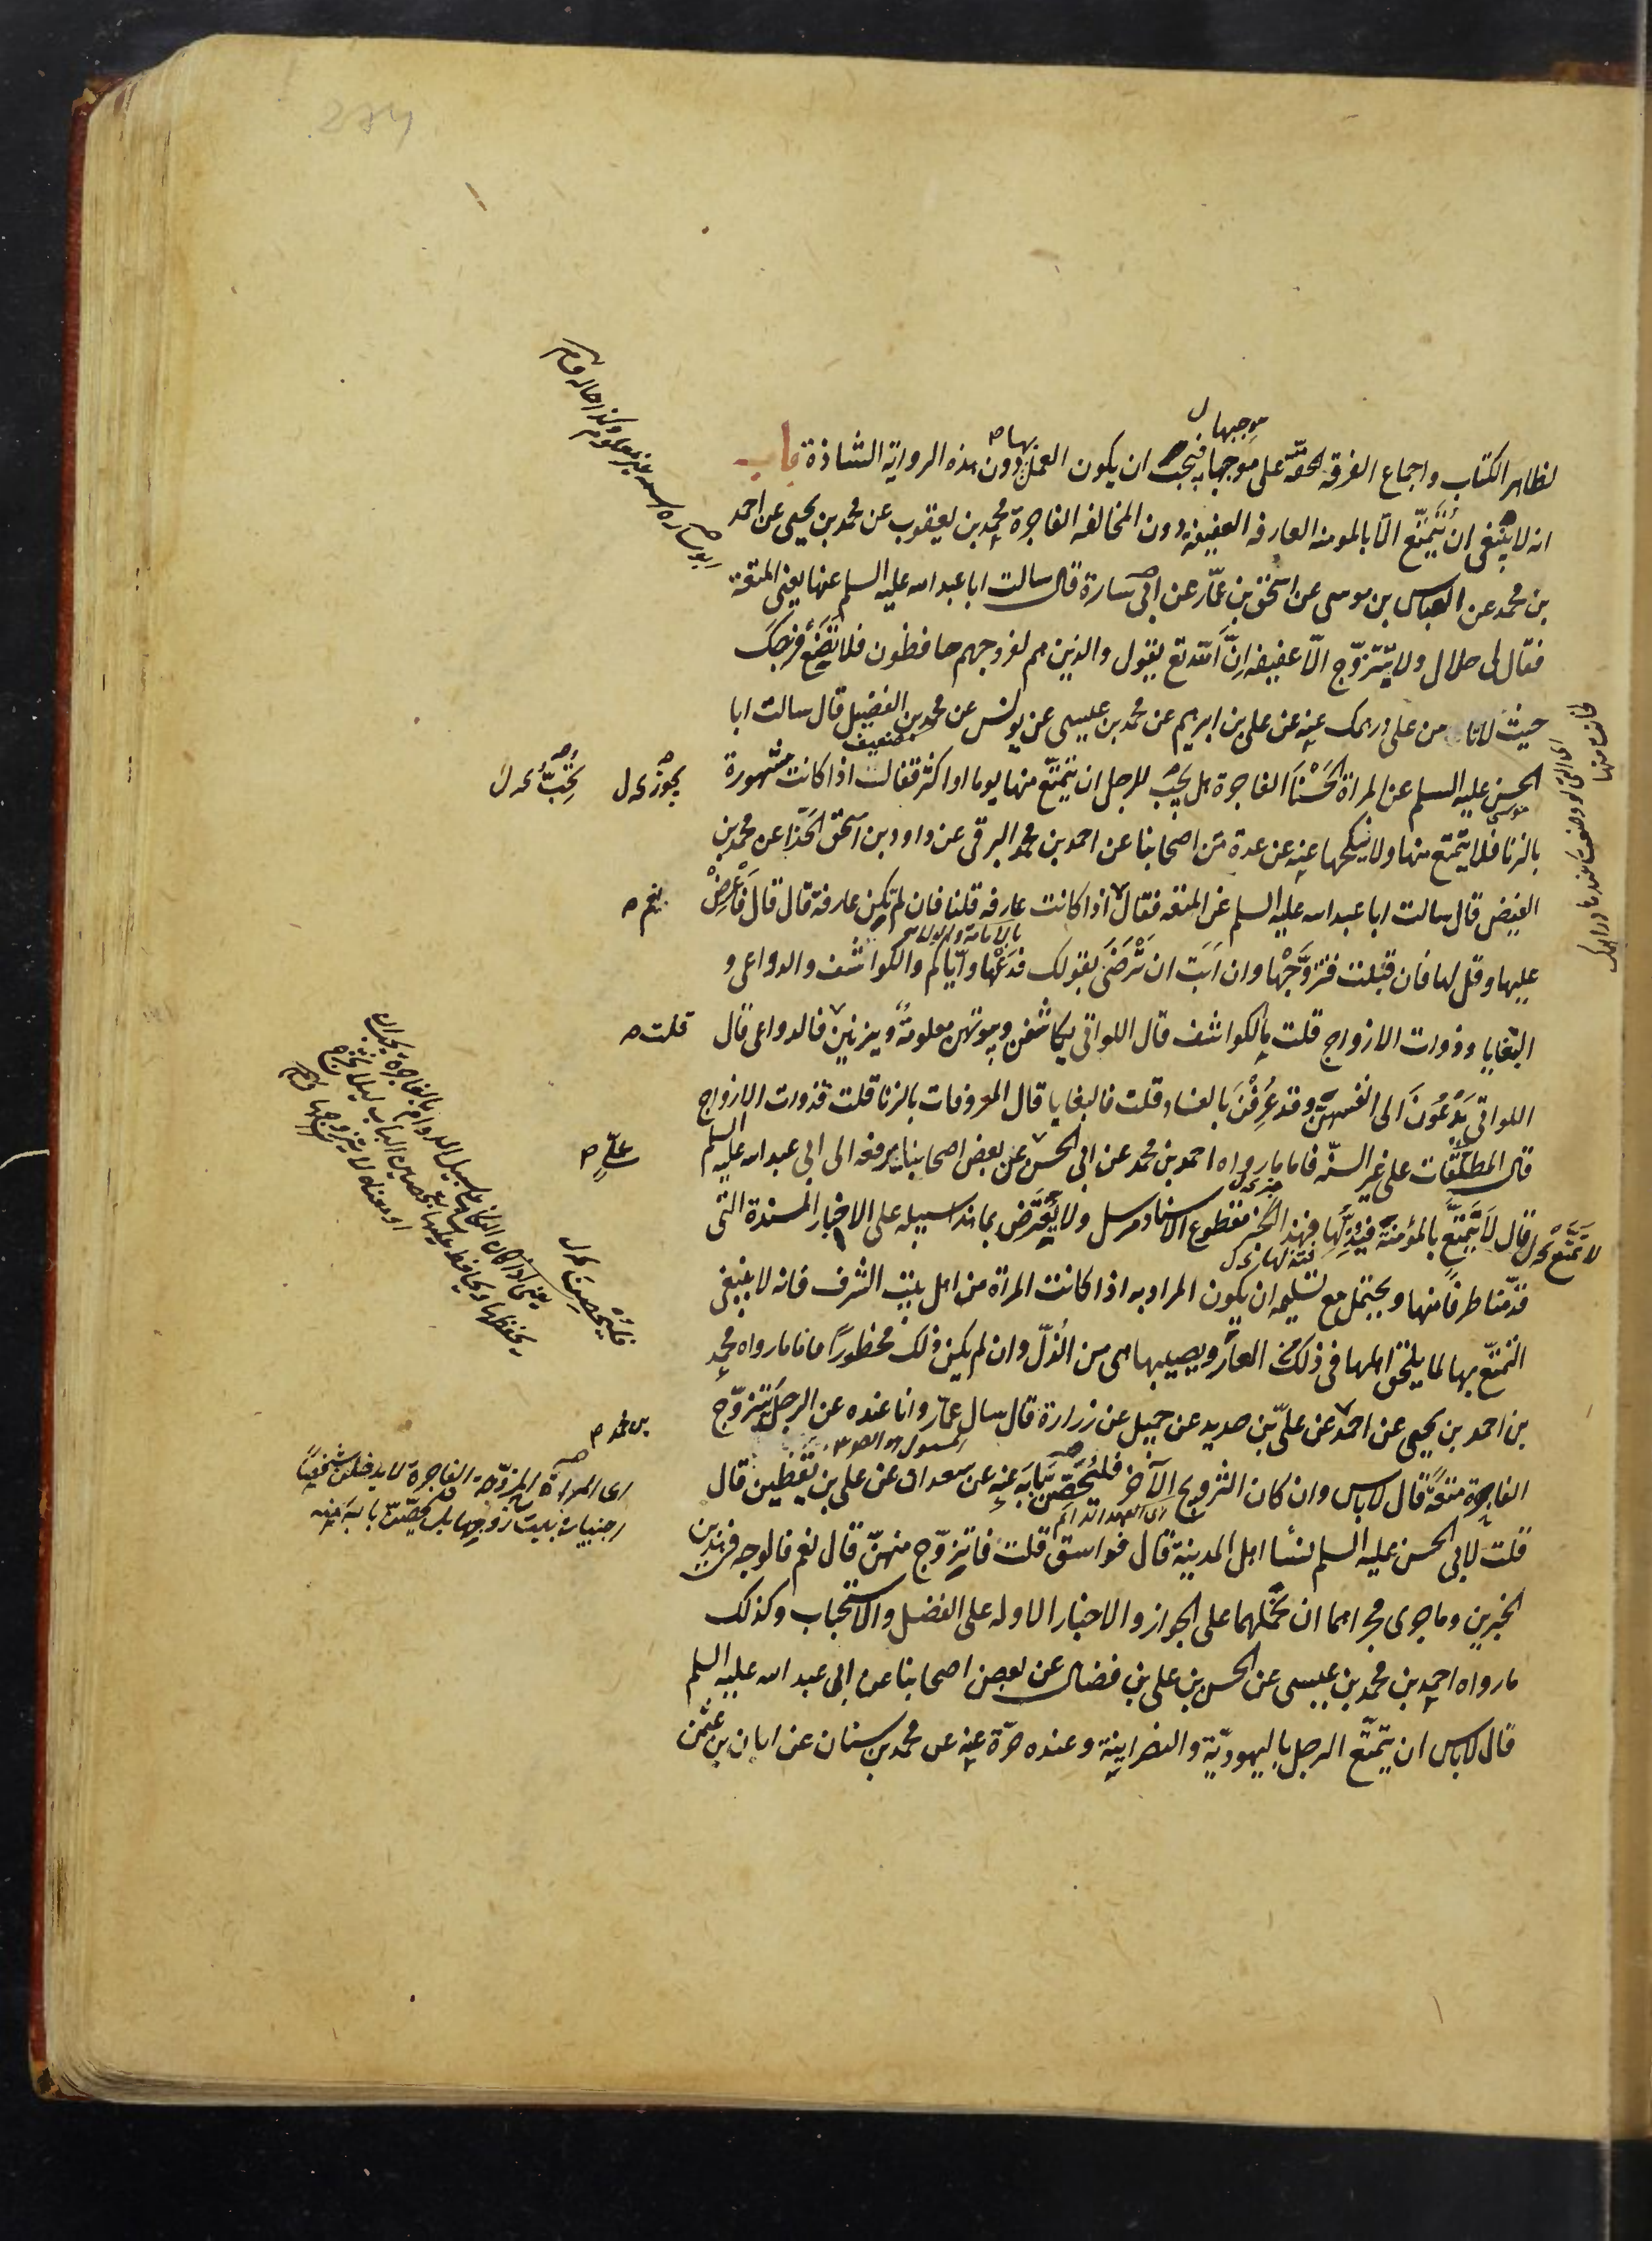 موجبها ل
بها ص
لظاهر الكتاب واجماع الفرقة المحقة على موجبها فيجب ان يكون العمل دون هذه الرواية الشاذة باب
انه لا ينبغى ان يتمتّع الّا بالمومنة العارفة العفيفة دون المخالفة الفاجرة محمد بن يعقوب عن محمد بن يحيى عن احمد
بن محمد عن العباس بن موسى عن اسحق بن عمّار عن ابى سارة قال سالت ابا عبد الله عليه السلم عنها يعنى المتعة
فقال لى حلال ولا يتزوّج الّا عفيفة انّ الله تع يقول والذين هم لفروجهم حافظون فلا تضع فرجك
حيث لا تامن على درهمك عنه عن على بن ابرهيم عن محمد بن عيسى عن يونس عن محمد بن الفضيل قال سالت ابا
ضعيف
الحسن عليه السلم عن المراة الحسنا الفاجرة هل يجب للرجل ان يتمتع منها يوما او اكثر فقال اذا كانت مشهورة
يجوز ل
يحبّ ل
بالزنا فلا يتمتع منها ولا ينكحها عنه عن عدة من اصحابنا عن احمد بن محمد البرقى عن داود بن اسحق الحذّا عن محمد بن
الفيض قال سالت ابا عبد الله عليه السلم عن المتعة فقال اذا كانت عارفة قلنا فان لم تكن عارفة قال قال فاعرض
نعم ص
عليها وقل لها فان قبلت فتزوّجها وان ابت ان ترضى بقولك فدعها واياكم والكواشف والدواعى و
البغايا وذوات الازواج قلت ما الكواشف قال اللواتى يكاشفن وبيوتهن معلومة ويزنين فالدواعى قال
قلت ص
اللواتى يدعون الى انفسهنّ وقد عرفن بالفساد قلت فالبغايا قال المعروفات بالزنا قلت فذوات الازواج
قال المطلّقات على غير السنّة فاما ما رواه احمد بن محمد عن ابى الحسن عن بعض اصحابنا يرفعه الى ابى عبد الله عليه السلم
علىّ ص
قال لا تتمتّع بالمؤمنة فتذلّها فهذا الخبر مقطوع الاسناد مرسل ولا يعترض بما هذا سبيله على الاخبار المسندة التى
قدّمنا طرفا منها ويحتمل مع تسليمه ان يكون المراد به اذا كانت المراة من اهل بيت الشرف فانه لا ينبغى
التمتّع بها لما يلحق اهلها فى ذلك من العار ويصيبها هى من الذلّ وان لم يكن ذلك محظورا فاما ما رواه محمد
بن احمد بن يحيى عن احمد عن علىّ بن حديد عن جميل عن زرارة قال سال عمّار وانا عنده عن الرجل يتزوّج
بن محمد ص
الفاجرة متعة قال لا باس وان كان التزويج الآخر فليحصن بابه عنه عن سعدان عن على بن يقطين قال
قلت لابى الحسن عليه السلم نسا اهل المدينة قال فواسق قلت فاتزوّج منهنّ قال نعم فالوجه فى هذين
الخبرين وما جرى مجراهما ان نحملهما على الجواز والاخبار الاوله على الفضل والاستحباب وكذلك
ما رواه احمد بن محمد بن عيسى عن الحسن بن على بن فضال عن بعض اصحابنا عن ابى عبد الله عليه السلم
قال لا باس ان يتمتّع الرجل باليهوديّة والنصرانية وعنده حرّة عنه عن محمد بن سنان عن ابان بن عثمن
اى المراة المزوّجة الفاجرة لا يدخلن شخصا